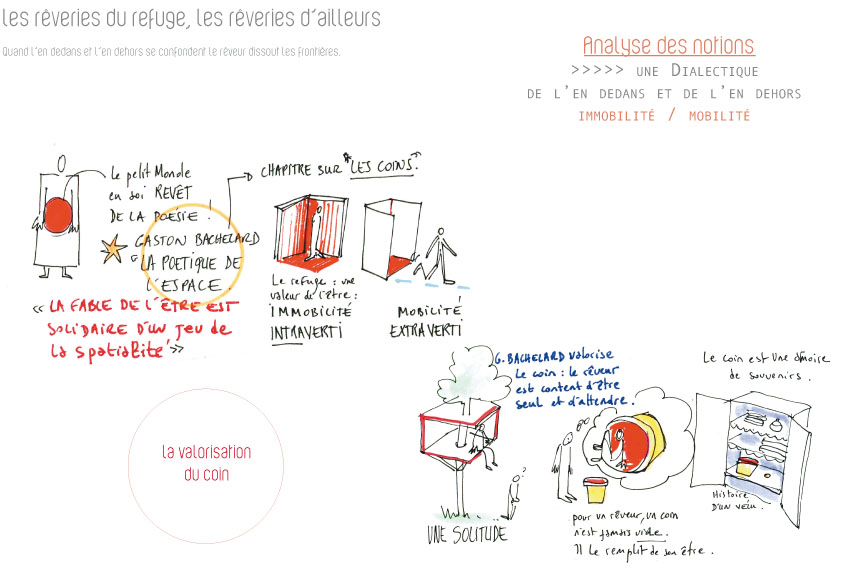 les rêveries du refuge, les rêveries d'ailleurs
Quand l'en dedans et l'en dehors se confondent le rêveur dissout les frontières.
Analyse des notions
>>>>> une Dialectique
de l'en dedans et de l'en dehors
immobilité / mobilité
Le petit Monde
en soi REVET
DE LA POÉSIE !
CHAPITRE SUR "LES COINS".
GASTON BACHELARD
"LA POETIQUE DE
L'ESPACE.
« LA FABLE DE L'ÊTRE EST
SOLIDAIRE D'UN JEU DE
LA SPATIALITÉ »
Le refuge : une
valeur de l'être :
IMMOBILITÉ
INTRAVERTI
MOBILITÉ
EXTRAVERTI
la valorisation
du coin
G. BACHELARD valorise
Le coin : le rêveur
est content d'être
seul et d'attendre.
UNE SOLITUDE
?
pour un rêveur, un coin
n'est jamais vide.
Il le remplit de son être.
Le coin est une armoire
de souvenirs.
Histoire
D'un vécu.